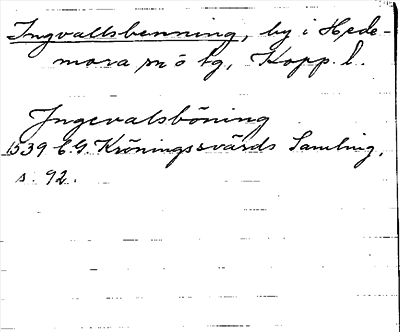 Ingvallsbenning, by i Hede-
mora sn o tg, Kopp. l.
Ingevalsböning
1539 C.G. Kröningssvärds Samling,
s. 92.